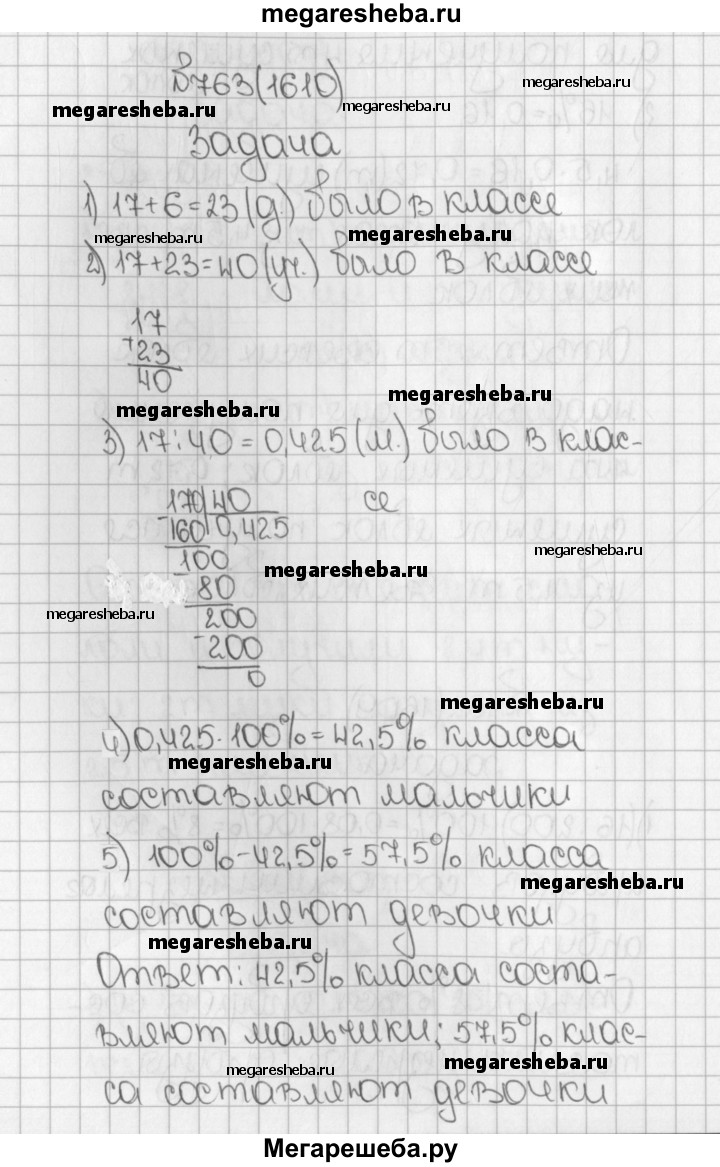 megaresheba.ru
№763(1610)
megaresheba.ru
megaresheba.ru
megaresheba.ru
Задача
1) 17+6=23(д.) было в классе
megaresheba.ru
megaresheba.ru
2) 17+23=40(уч.) было в классе
17
+23
40
megaresheba.ru
megaresheba.ru
3) 17:40=0,425(м.) было в клас-
се
170 40
-160 0,425
100
megaresheba.ru
megaresheba.ru
80
megaresheba.ru
200
-200
0
megaresheba.ru
4) 0,425·100%=42,5% класса
megaresheba.ru
составляют мальчики
5) 100%-42,5%=57,5% класса
megaresheba.ru
составляют девочки
megaresheba.ru
Ответ: 42,5% класса соста-
вляют мальчики; 57,5% клас-
megaresheba.ru
megaresheba.ru
са составляют девочки
Мегарешеба.ру